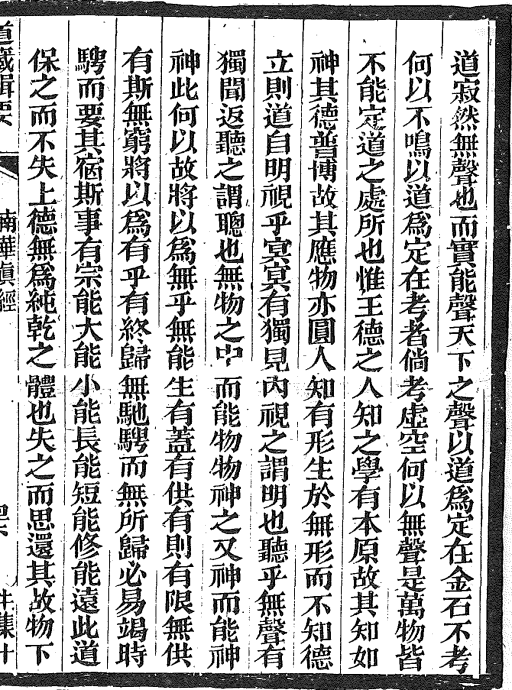 道寂然無聲也而實能聲天下之聲以道爲定在金石不考
何以不鳴以道爲定在考者倘考虛空何以無聲是萬物皆
不能定道之處所也惟王德之人知之學有本原故其知如
神其德普博故其應物亦圓人知有形生於無形而不知德
立則道自明視乎冥冥有獨見內視之謂明也聽乎無聲有
獨聞返聽之謂聰也無物之中而能物物神之又神而能神
神此何以故將以爲無乎無能生有蓋有供有則有限無供
有斯無窮將以爲有乎有終歸無馳騁而無所歸必易竭時
騁而要其宿斯事有宗能大能小能長能短能修能遠此道
保之而不失上德無爲純乾之體也失之而思還其故物下
道藏輯要
南華真經
牛集十